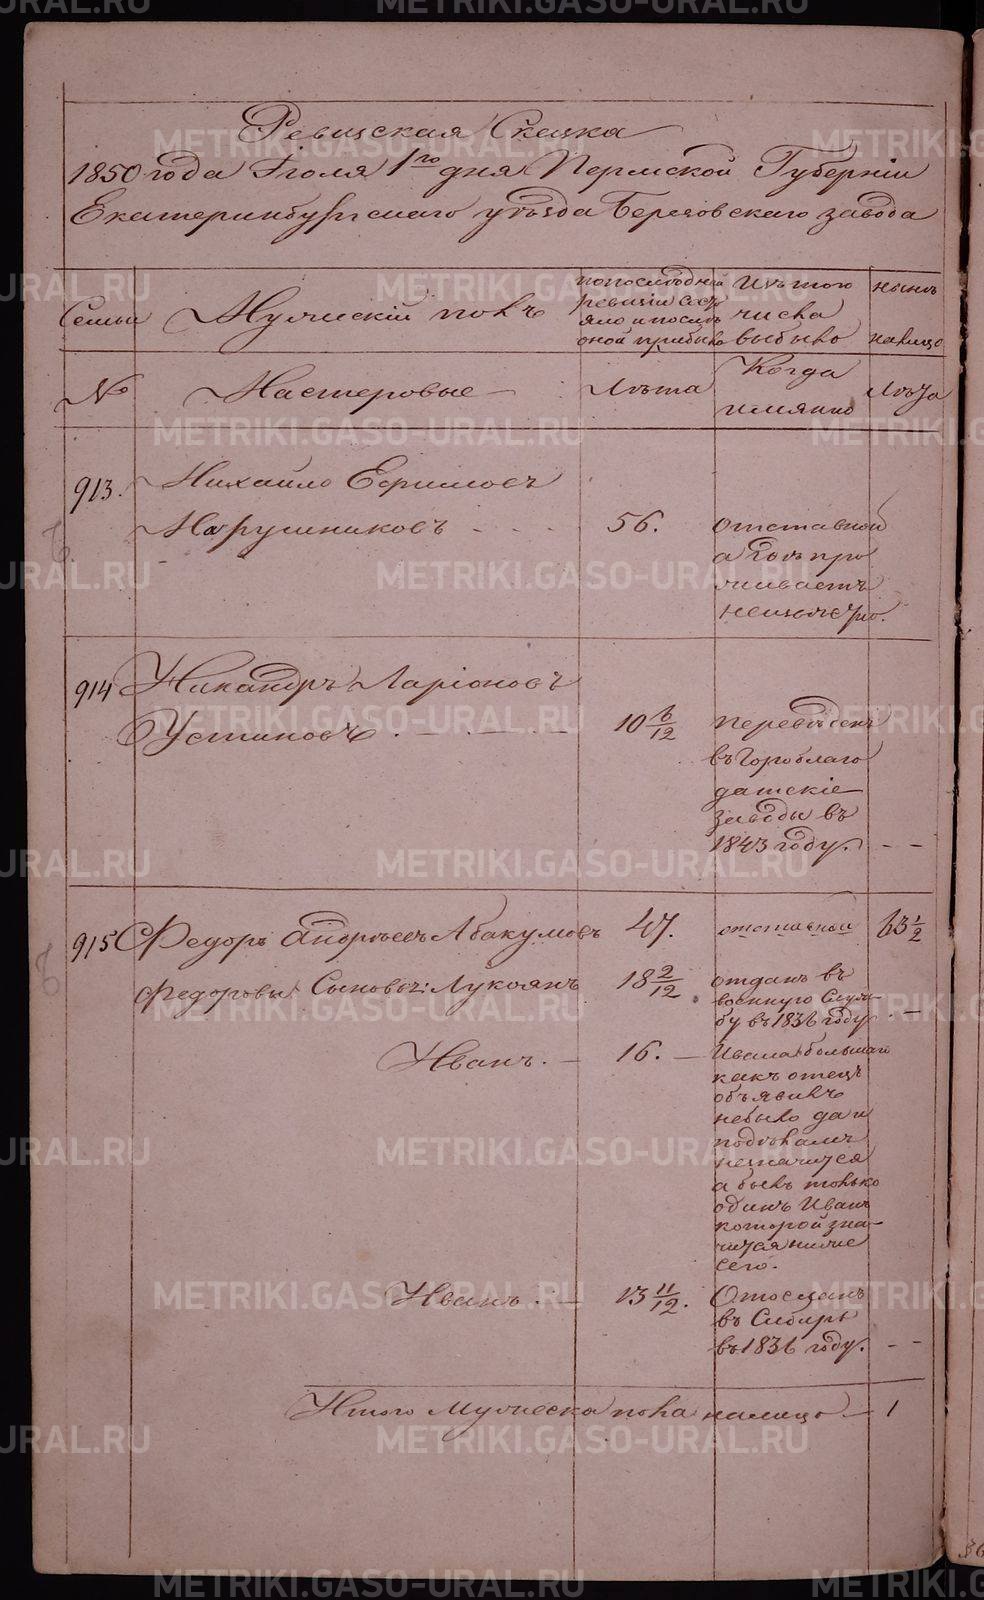 Ревизская Сказка
1850 года Іюля 1го дня Пермской Губерніи
Екатеринбургскаго уѣзда Березовскаго завода
Семьи
Мужескій полъ
по последней
ревизіи сост
яло и послѣ
оной прибыло
Изъ того
числа
выбыло
нынѣ
налицо
№
Мастеровые
Лѣта
Когда
имянно
Лѣта
913.
Михайло Ефимовъ
56.
отставной
а Домъ про
живаетъ
неизвестно.
914
Никандръ Ларіоновъ
Устиновъ
10 6/12
переведенъ
въ Гороблаго
датскіе
заводы въ
1843 году.
915
Федоръ Андреевъ Абакумовъ
47.
отставной
63 1/2
Федоровы Сыновья: Лукоянъ
18 2/12
отданъ въ
военную Служ-
бу въ 1836 году
Иванъ.
16.
Ивана большаго
какъ отецъ
объявилъ
небыло да и
незначится
а былъ только
одинъ Иванъ
которой зна-
чится ниже
сего.
Иванъ.
13 11/12.
Отосланъ
въ Сибирь
въ 1836 году.
Итого мужеска пола налицо
1
METRIKI.GASO-URAL.RU